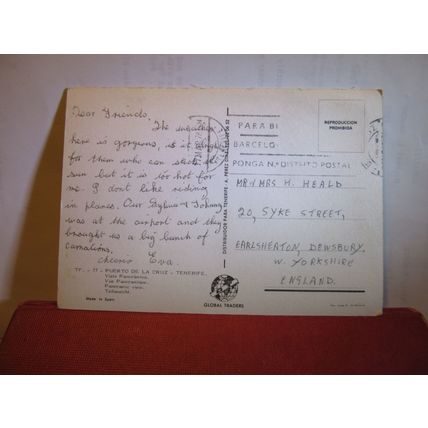 Dear Friends,
The weather
here is gorgeous, it is
for them who can
sun but it is too hot for
me. I don't like riding
in planes. Our &
was at the airport and they
brought us a big bunch of
carnations.
cheerio Eva.
TF. - 11 - PUERTO DE LA CRUZ - TENERIFE.
Vista Panorámica.
Vue Panoramique.
Panoramic view.
Teilansicht.
Made in Spain
DISTRIBUIDOR PARA TENERIFE - A. PEREZ
GLOBAL TRADERS
REPRODUCCION
PROHIBIDA
PARA BI
BARCELO
PONGA N.º DISTRITO POSTAL
MR & MRS H. HEALD
20, SYKE STREET,
EARLSHEATON, DEWSBURY.
W. YORKSHIRE
ENGLAND.